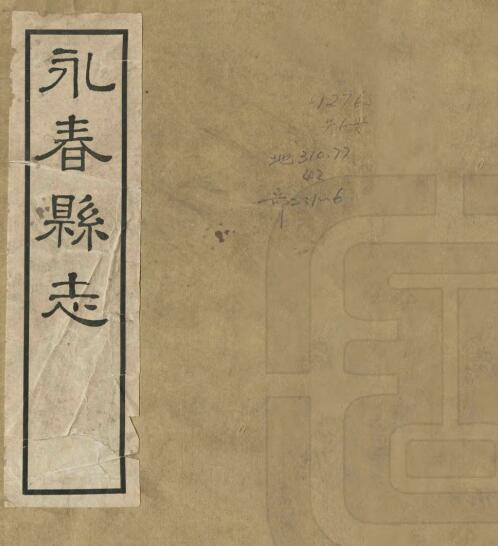 永春縣志
4276
地310.77
42